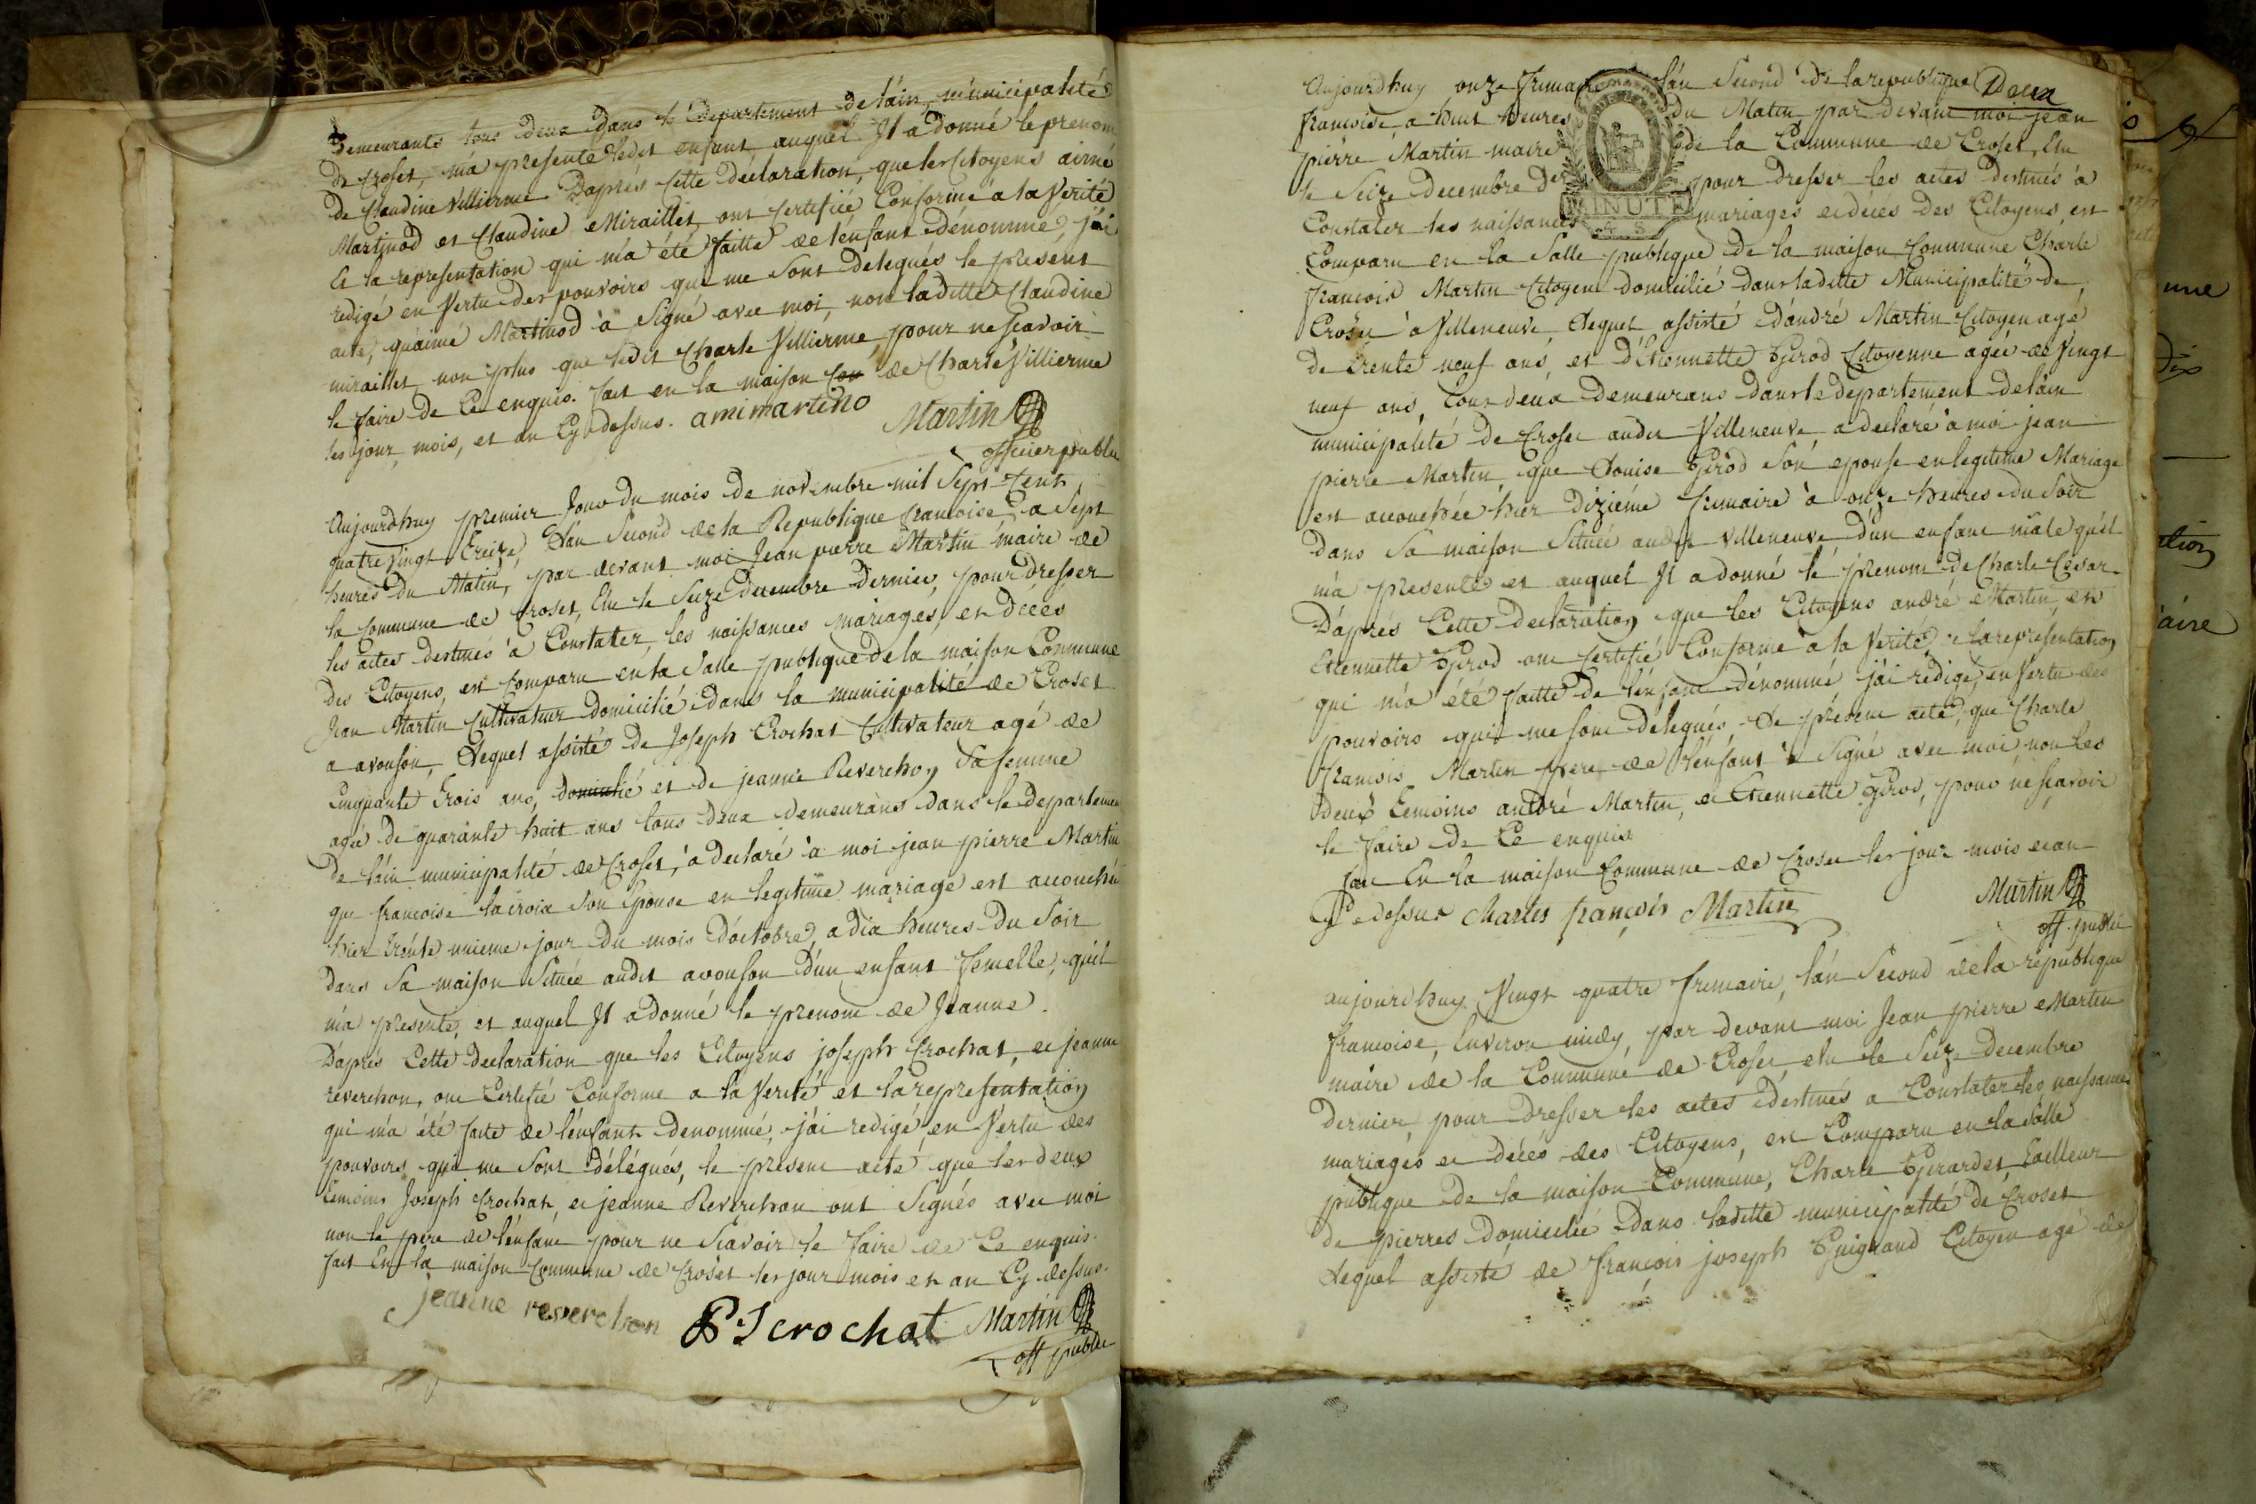 Demeurants tous deux dans le Departement de láin, municipalité
de Croset, m'a presenté ledit enfant auquel Il a donné le prenom
de Claudine Villierme D'aprés Cette déclaration, que les Citoyens aimé
Martinod et Claudine Miraillet ont Certifiée Conforme à la Verité
Et la representation qui m'a été faitte de lenfant dénommé, j'ai
redigé en Vertu des pouvoirs qui me sont delegués le present
acte, qu'aimé Martinod à Signé avec moi, non laditte Claudine
miraillet non plus que ledit Charle Villierme, pour ne scavoir
le faire de Ce enquis. fait en la maison de Charle Villierme
les jour, mois, et an Cy dessus. amimartino Martin
officier public
Aujourdhuy premier Jour du mois de novembre mil Sept Cent
quatre Vingt Treize, L'an Second de la Republique francoise, a Sept
heures du Matin, par devant moi Jean pierre Martin maire de
la Commune de Croset, Elu le Seize Decembre Dernier, pour Dresser
les actes destinés à Constater les naissances mariages, et décès
des Citoyens, est Comparu en la Salle publique de la maison Commune
Jean Martin Cultivateur domicilié dans la municipalité de Croset
a avouson, Lequel assisté de Joseph Crochat Cultivateur agé de
Cinquante Trois ans, domicilié et de jeanne Reverchon Sa femme
agée de quarante huit ans tous deux demeurans dans le departement
de láin municipalité de Croset, a declaré à moi jean pierre Martin
que francoise lacroix Son Epouse en legitime mariage est accouchée
hier trente unieme jour du mois D'octobre, a dix heures du Soir
dans Sa maison Située audit avouson D'un enfant femelle, qu'il
m'a presenté, et auquel Il a donné le prenom de Jeanne.
D'aprés Cette declaration que les Citoyens joseph Crochat, et jeanne
reverchon, ont Certifié Conforme a la Verité et la representation
qui m'a été faite de l'enfant denommé, j'ai redigé, en Vertu des
pouvoirs qui me Sont délégués, le present acte, que les deux
temoins Joseph Crochat, et jeanne Reverchon ont Signés avec moi
non le pere de l'enfant pour ne Scavoir le faire de Ce enquis.
fait En la maison Commune de Croset les jour mois et an Cy dessus.
jeanne reverchon J crochat Martin
off public
Deux
Aujourdhuy onze frimaire l'an Second de la republique
francoise, a huit heures du Matin par devant moi jean
pierre Martin maire de la Commune de Croset, Elu
le Seize Decembre der pour dresser les actes destinés à
Constater les naissances mariages et décès des Citoyens, est
MINUTE
Comparu en la Salle publique de la maison Commune Charle
francois Martin Citoyen domicilié dans laditte Municipalité de
Croset à Villeneuve, Lequel assisté d'andré Martin Citoyen agé
de trente neuf ans, et d'Etiennette Girod Citoyenne agée de Vingt
neuf ans, tous deux demeurans dans le departement de láin
municipalité de Croset audit Villeneuve, a declaré à moi jean
pierre Martin que Louise Girod Son epouse en legitime Mariage
est accouchée hier dizième frimaire à onze heures du Soir
dans Sa maison Située audit Villeneuve d'un enfant mâle qu'il
m'a presenté et auquel Il a donné le prenom de Charle Cesar.
D'aprés Cette declaration que les Citoyens andré Martin, et
Etiennette Girod ont Certifié Conforme à la Verité, et la representation
qui m'a été faitte de l'enfant dénommé j'ai rédigé, en Vertu des
pouvoirs qui me sont délegués, Le présent acte, que Charle
francois Martin pere de l'enfant à Signé avec moi non les
deux temoins andré Martin, et Etiennette Girod, pour ne scavoir
le faire de Ce enquis
fait En la maison Commune de Croset les jour mois et an
Cy dessus Charles françois Martin Martin
off. public
aujourdhuy Vingt quatre frimaire, l'an Second de la republique
francoise, Environ midy, par devant moi Jean pierre Martin
maire de la Commune de Croset, elu le Seize Decembre
Dernier, pour Dresser les actes destinés a Constater les naissances
mariages et décès des Citoyens, est Comparu en la Salle
publique de la maison Commune, Charle Girardet Tailleur
de pierres Domicilié dans laditte municipalité de Croset
Lequel assisté de francois joseph Guignaud Citoyen agé de